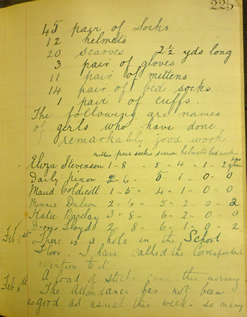 225
45 pair of Socks
12 helmets
20 scarves 2½ yds long
3 pair of gloves
11 pair of mittens
14 pair of bed socks
1 pair of cuffs
The following are names
of girls who have done
remarkably good work
mittens pair socks scarves helmets bed socks
Eliza Stevenson 1 - 8 - 3 - 4 - 1 2
Daily 2 - 6 - 5 - 1 - 0 - 0
Maud 1 - 5 - 4 - 1 - 0 - 0
Minnie 2 - 6 - 5 - 2 - 0 - 2
Katie Barclay 3 - 8 - 6 - 2 - 0 - 0
Lloyd 2 - 8 - 6 - 1 - 0 - 2
Feb 1st There is a hole in the School
Floor. I have called the Correspondents
attention to it
A load of Sticks this morning
Feb The attendance has not been
as good as usual this week so many